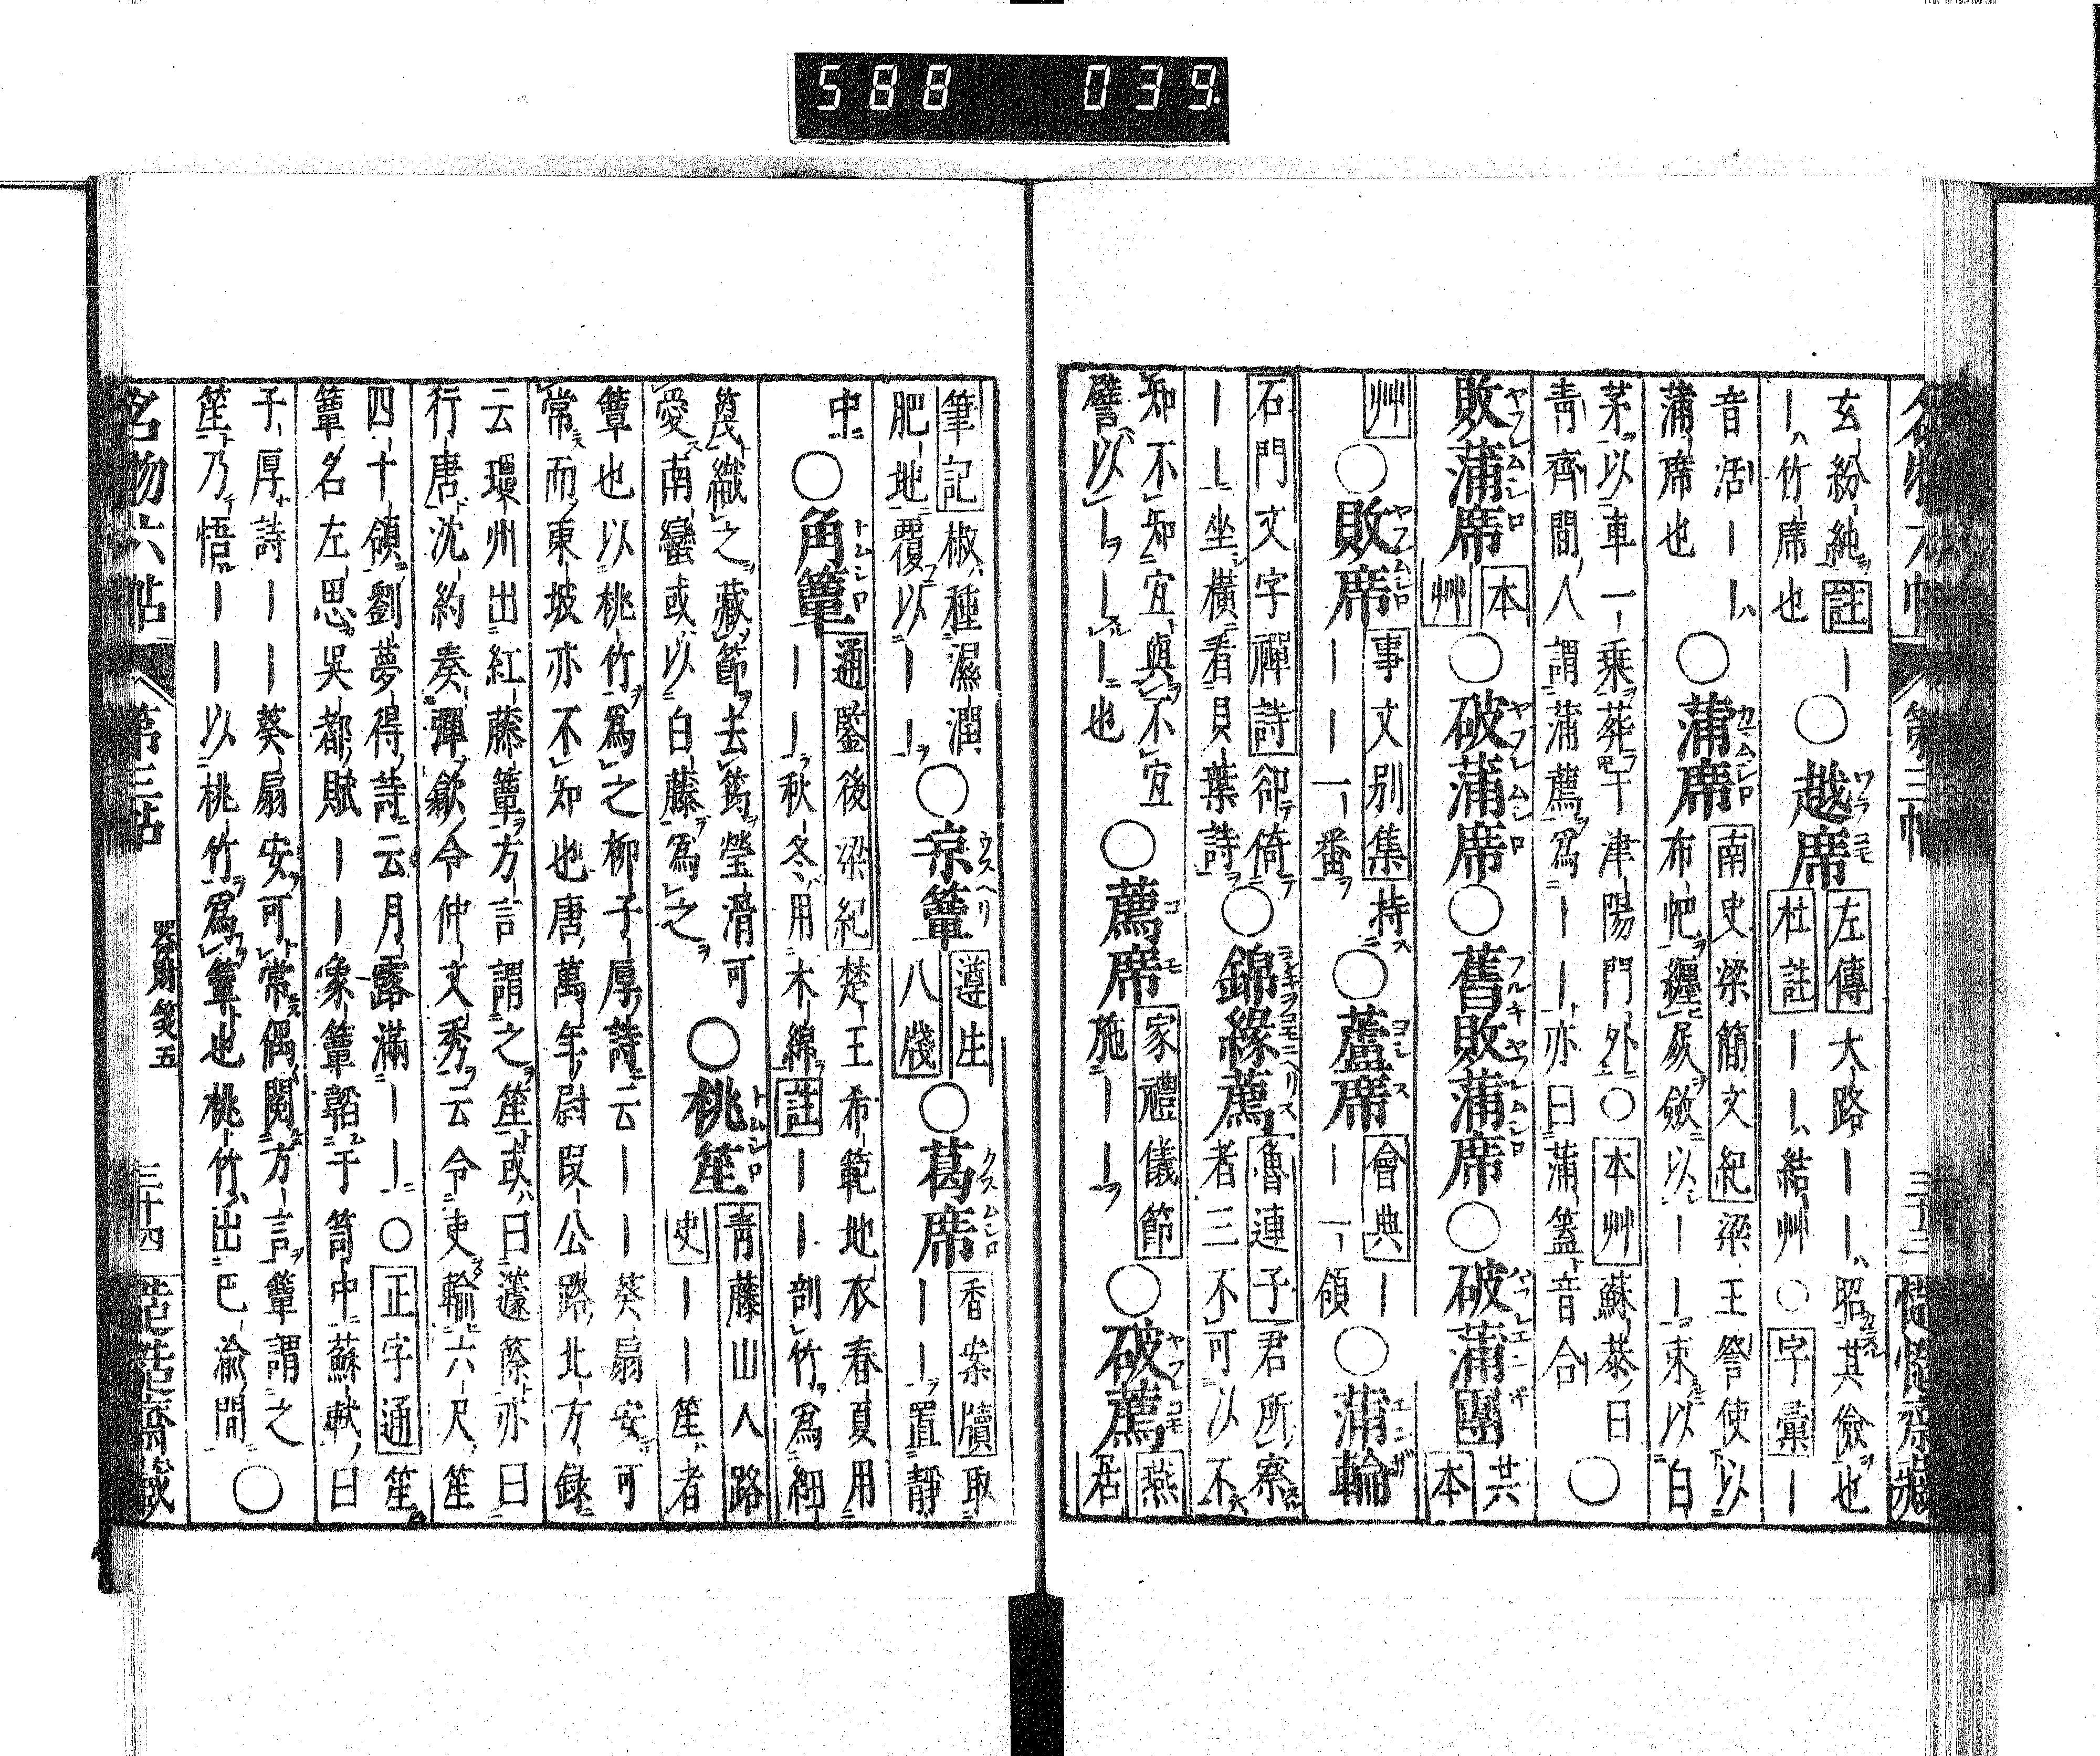 588 039.
名物六帖 第三帖 三十三 慥慥齋藏
玄紛純註｜
｜竹席也
○越席
左傳大路｜｜昭其儉也
杜註｜｜結艸○字彙｜
音活｜｜
蒲席也
○蒲席
南史梁簡文紀梁王詧使以
布帊纒屍斂以｜｜束以白
茅以車一乘葬于津陽門外○本艸蘇恭曰
青齊間人謂蒲薦爲｜｜亦曰蒲蓋音合
○
敗蒲席
本
艸
○破蒲席○舊敗蒲席○破蒲團
共
本
艸
○敗席
事文別集持
｜｜一番
○蘆席
會典｜
｜一領
○蒲輪
石門文字禪詩卻倚
｜｜坐橫看貝葉詩
○錦緣薦
魯連子君所察
者三不可以不
知不知宜與不宜
譬以｜｜｜也
○薦席
家禮儀節
施｜｜
○破薦
燕
居
筆記椒種濕潤
肥地覆以｜｜
○凉簟
遵生
八牋
○葛席
香案牘取
｜｜置靜
中
○角簟
通鑒後梁紀楚王希範地衣春夏用
｜｜秋冬用木綿註｜｜剖竹爲細
篾織之藏節去筠瑩滑可
愛南蠻或以白藤爲之
○桃笙
青藤山人路
史｜｜笙者
簟也以桃竹爲之柳子厚詩云｜｜葵扇安可
常而東坡亦不知也唐萬年尉段公路北方錄
云瓊州出紅藤簟方言謂之笙或曰籧篨亦曰
行唐沈約奏彈歙令仲文秀云令吏輸六尺笙
四十領劉夢得詩云月露滿｜｜○正字通笙
簟名左思吳都賦｜｜象簟韜于筒中蘇軾曰
子厚詩｜｜葵扇安可常偶閱方言簟謂之
笙乃悟｜｜以桃竹爲簟也桃竹出巴渝間
○
名物六帖 第三帖 器財箋五 三十四 慥慥齋藏